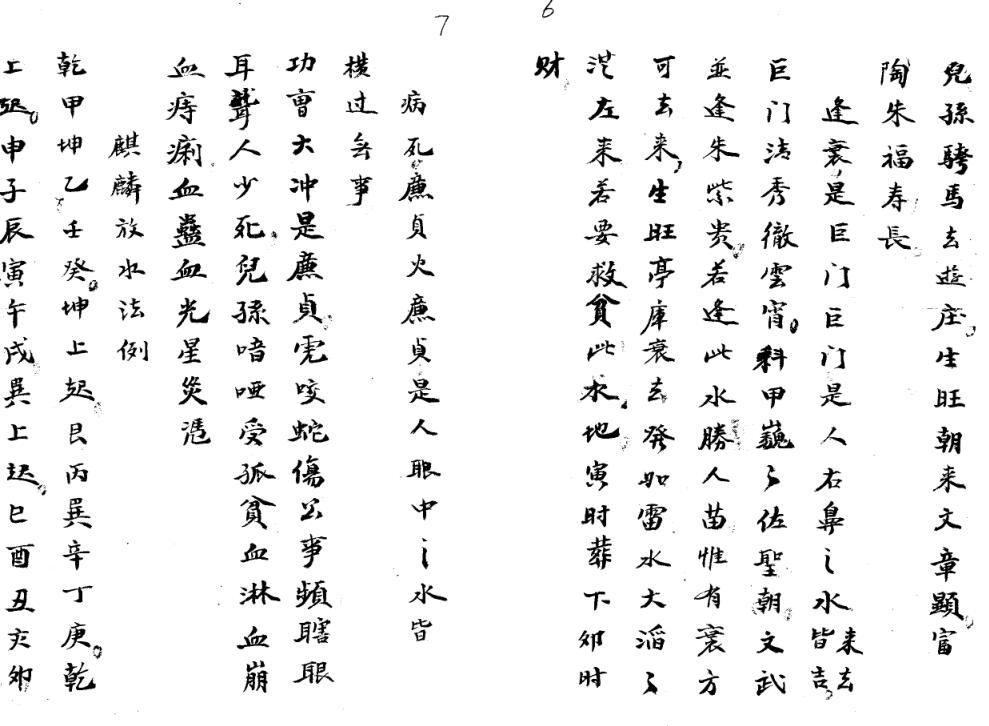 6
兒孫騁馬去遊庄生旺朝来文章顯富
陶朱福寿長
逢衰是巨门巨门是人右鼻之水皆吉来去
巨门清秀徹雲霄科甲巍々佐聖朝文武
並逢朱紫贵若逢此水勝人苗惟有衰方
可去来生旺亭庫衰去發如雷水大滔々
從左来若要救貧此水地寅时葬下夘时
财
7
病死廉貞火廉貞是人眼中之水皆
横过无事
功曺大冲是廉貞虎咬蛇傷公事頻瞎眼
耳聾人少死兒孫喑哑受孤貧血淋血崩
血痔痢血蠱血光星炎憑
麒麟放水法例
乾甲坤乙壬癸坤上起艮丙巽辛丁庚乾
上起申子辰寅午戌巽上起巳酉丑亥夘